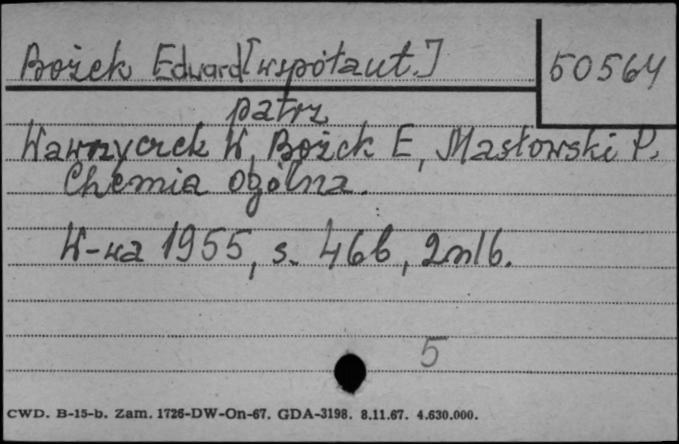 Bożek Edward [współaut.]
50564
patrz
Wawrzyczek W, Bożek E, Masłowski P.
Chemia ogólna.
W-wa 1955, s. 466, 2nlb.
5
CWD. B-15-b. Zam. 1726-DW-On-67. GDA-3198. 8.11.67. 4.630.000.